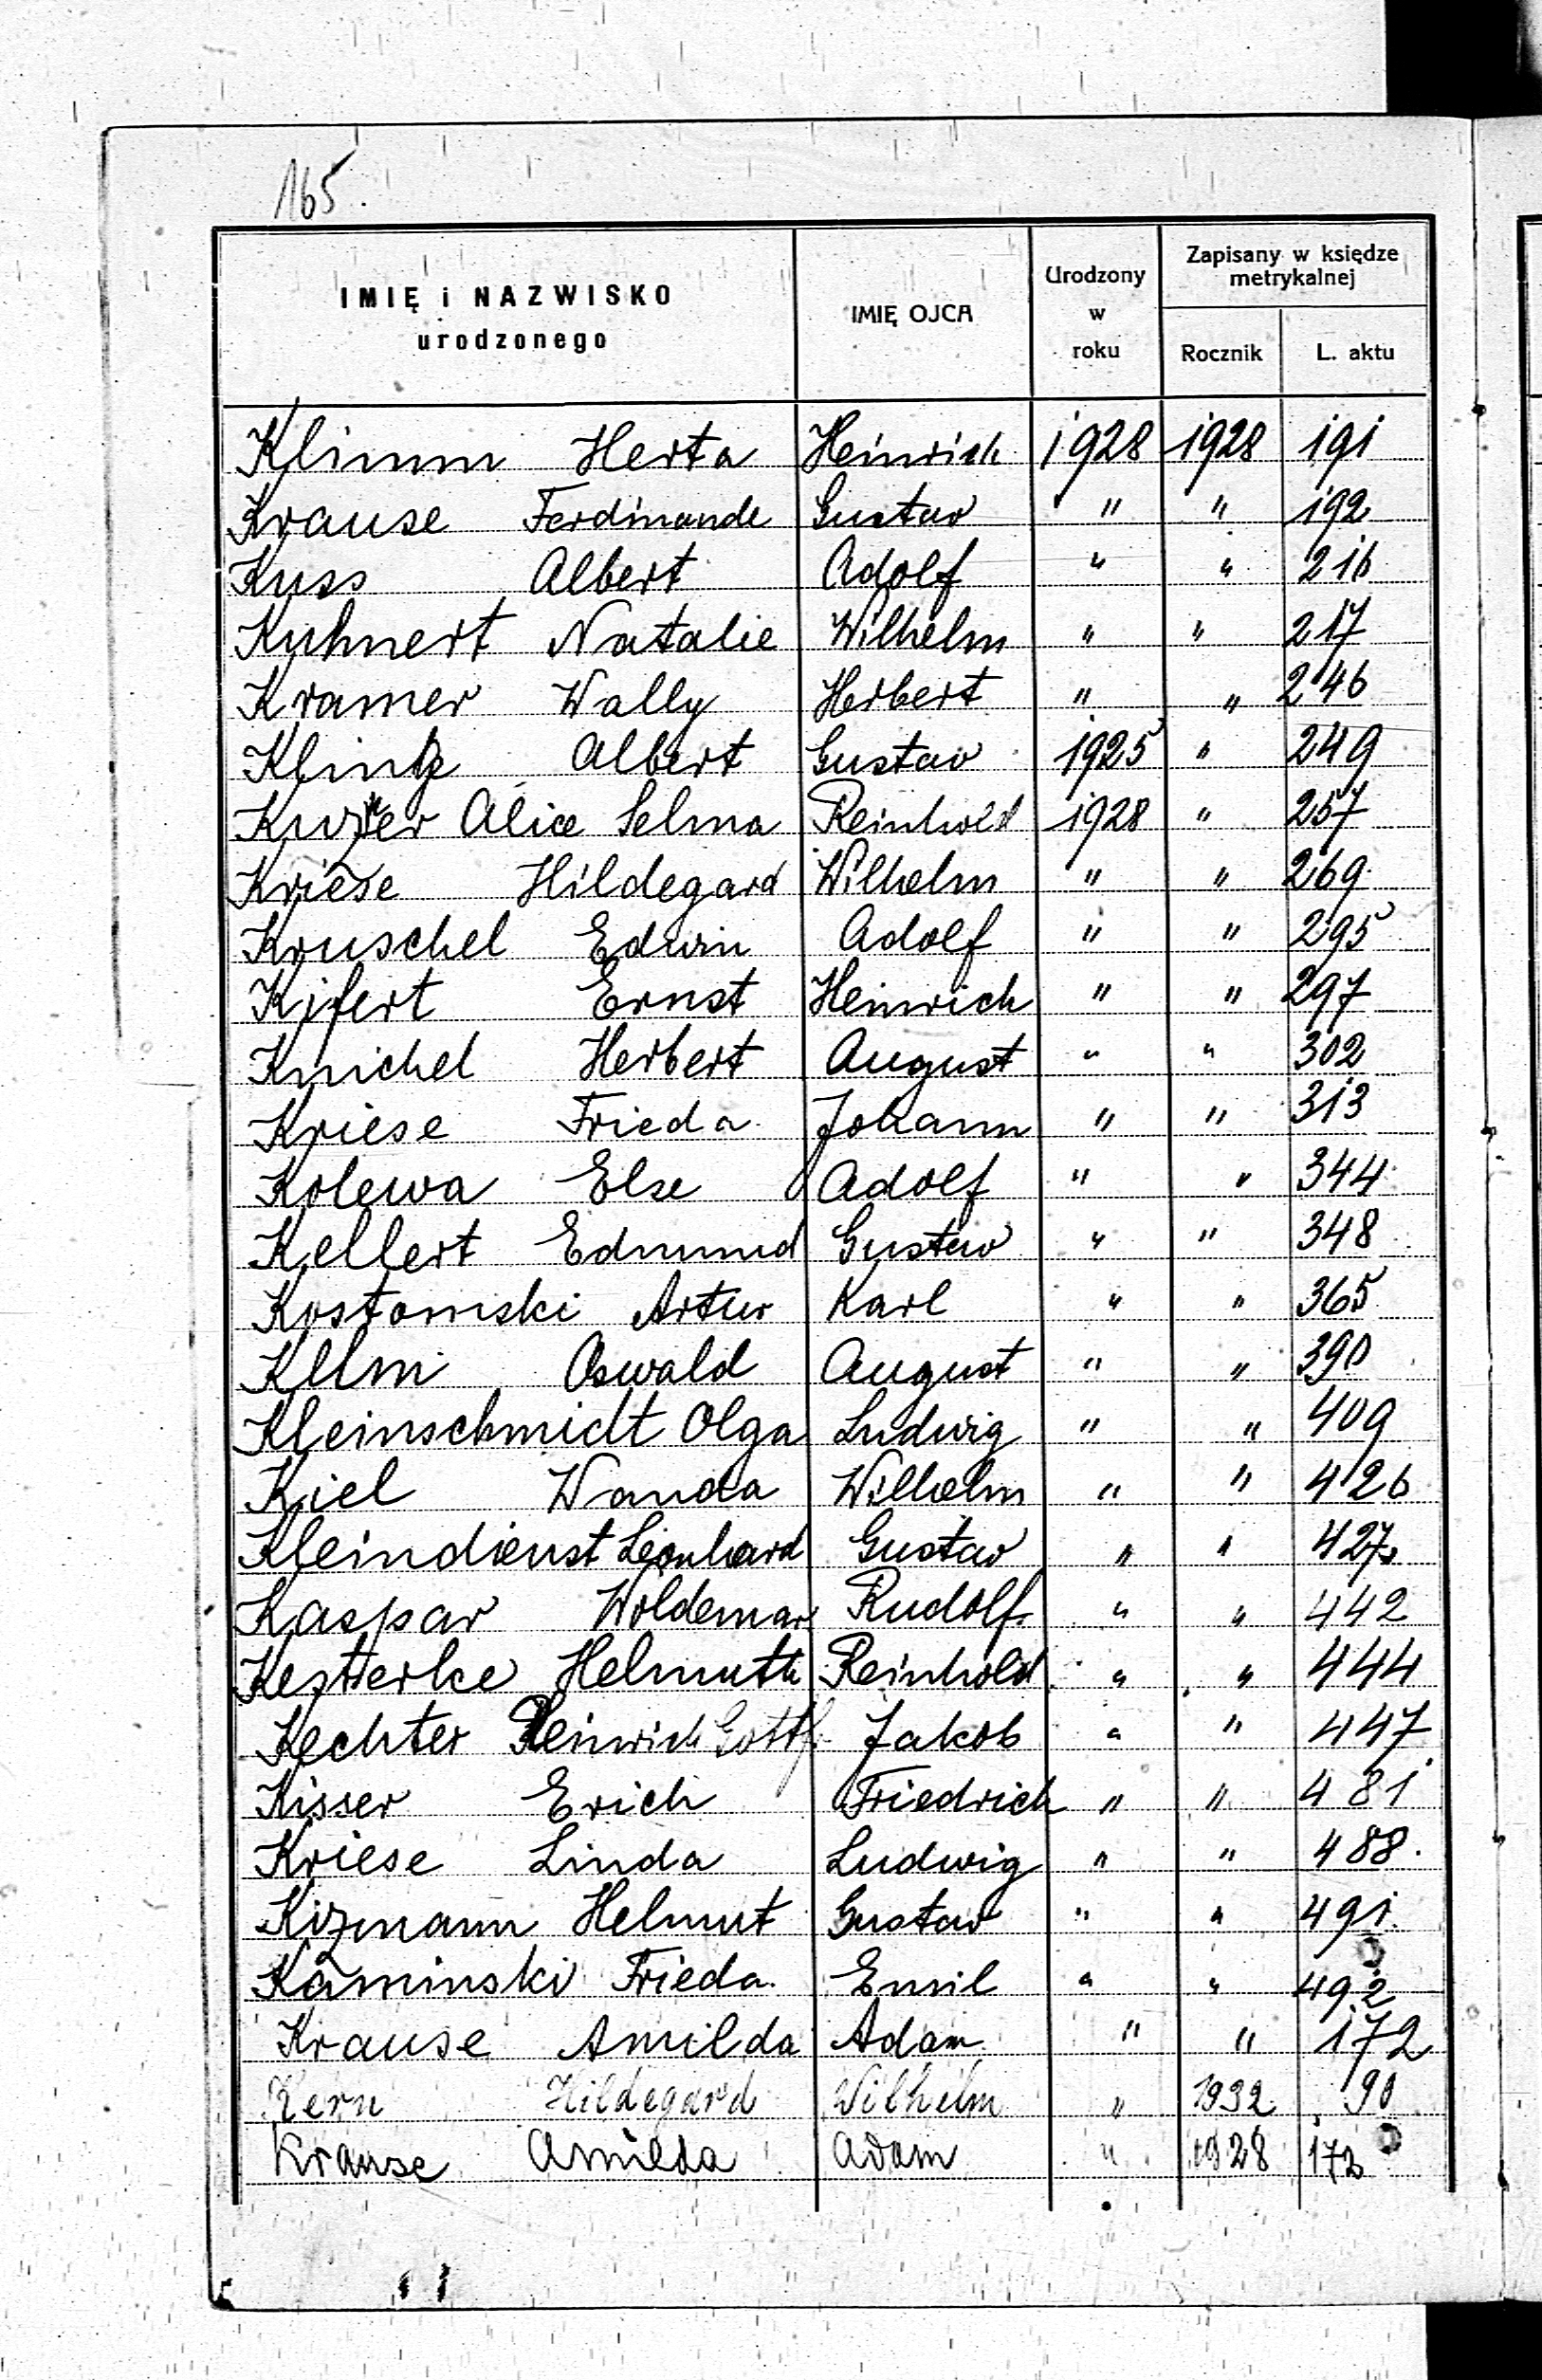 165.
IMIĘ i NAZWISKO urodzonego
IMIĘ OJCA
Urodzony w roku
Zapisany w księdze metrykalnej
Rocznik
L. aktu
Klimm Herta Heinrich 1928 1928 191
Krause Ferdinande Gustav " " 192
Kuss Albert Adolf " " 216
Kuhnert Natalie Wilhelm " " 217
Kramer Wally Herbert " " 246
Klintz Albert Gustav 1925 " 249
Alice Selma Reinhold 1928 " 257
Kriese Hildegard Wilhelm " " 269
Kruschel Edwin Adolf " " 295
Kifert Ernst Heinrich " " 297
Knichel Herbert August " " 302
Kriese Frieda Johann " " 313
Kolewa Else Adolf " " 344
Kellert Edmund Gustav " " 348
Kostomski Artur Karl " " 365
Klim Oswald August " " 390
Kleinschmidt Olga Ludwig " " 409
Kiel Wanda Wilhelm " " 426
Kleindienst Leonhard Gustav " " 427
Kaspar Woldemar Rudolf " " 442
Helmuth Reinhold " " 444
Kechter Heinrich Gottf. Jakob " " 447
Kisser Erich Friedrich " " 481
Kriese Linda Ludwig " " 488.
Kizmann Helmut Gustav " " 491.
Kaminski Frieda Emil " " 492
Krause Amilda Adam " " 172
Kern Hildegard Wilhelm " 1932 90
Krause Amilda Adam " 1928 172